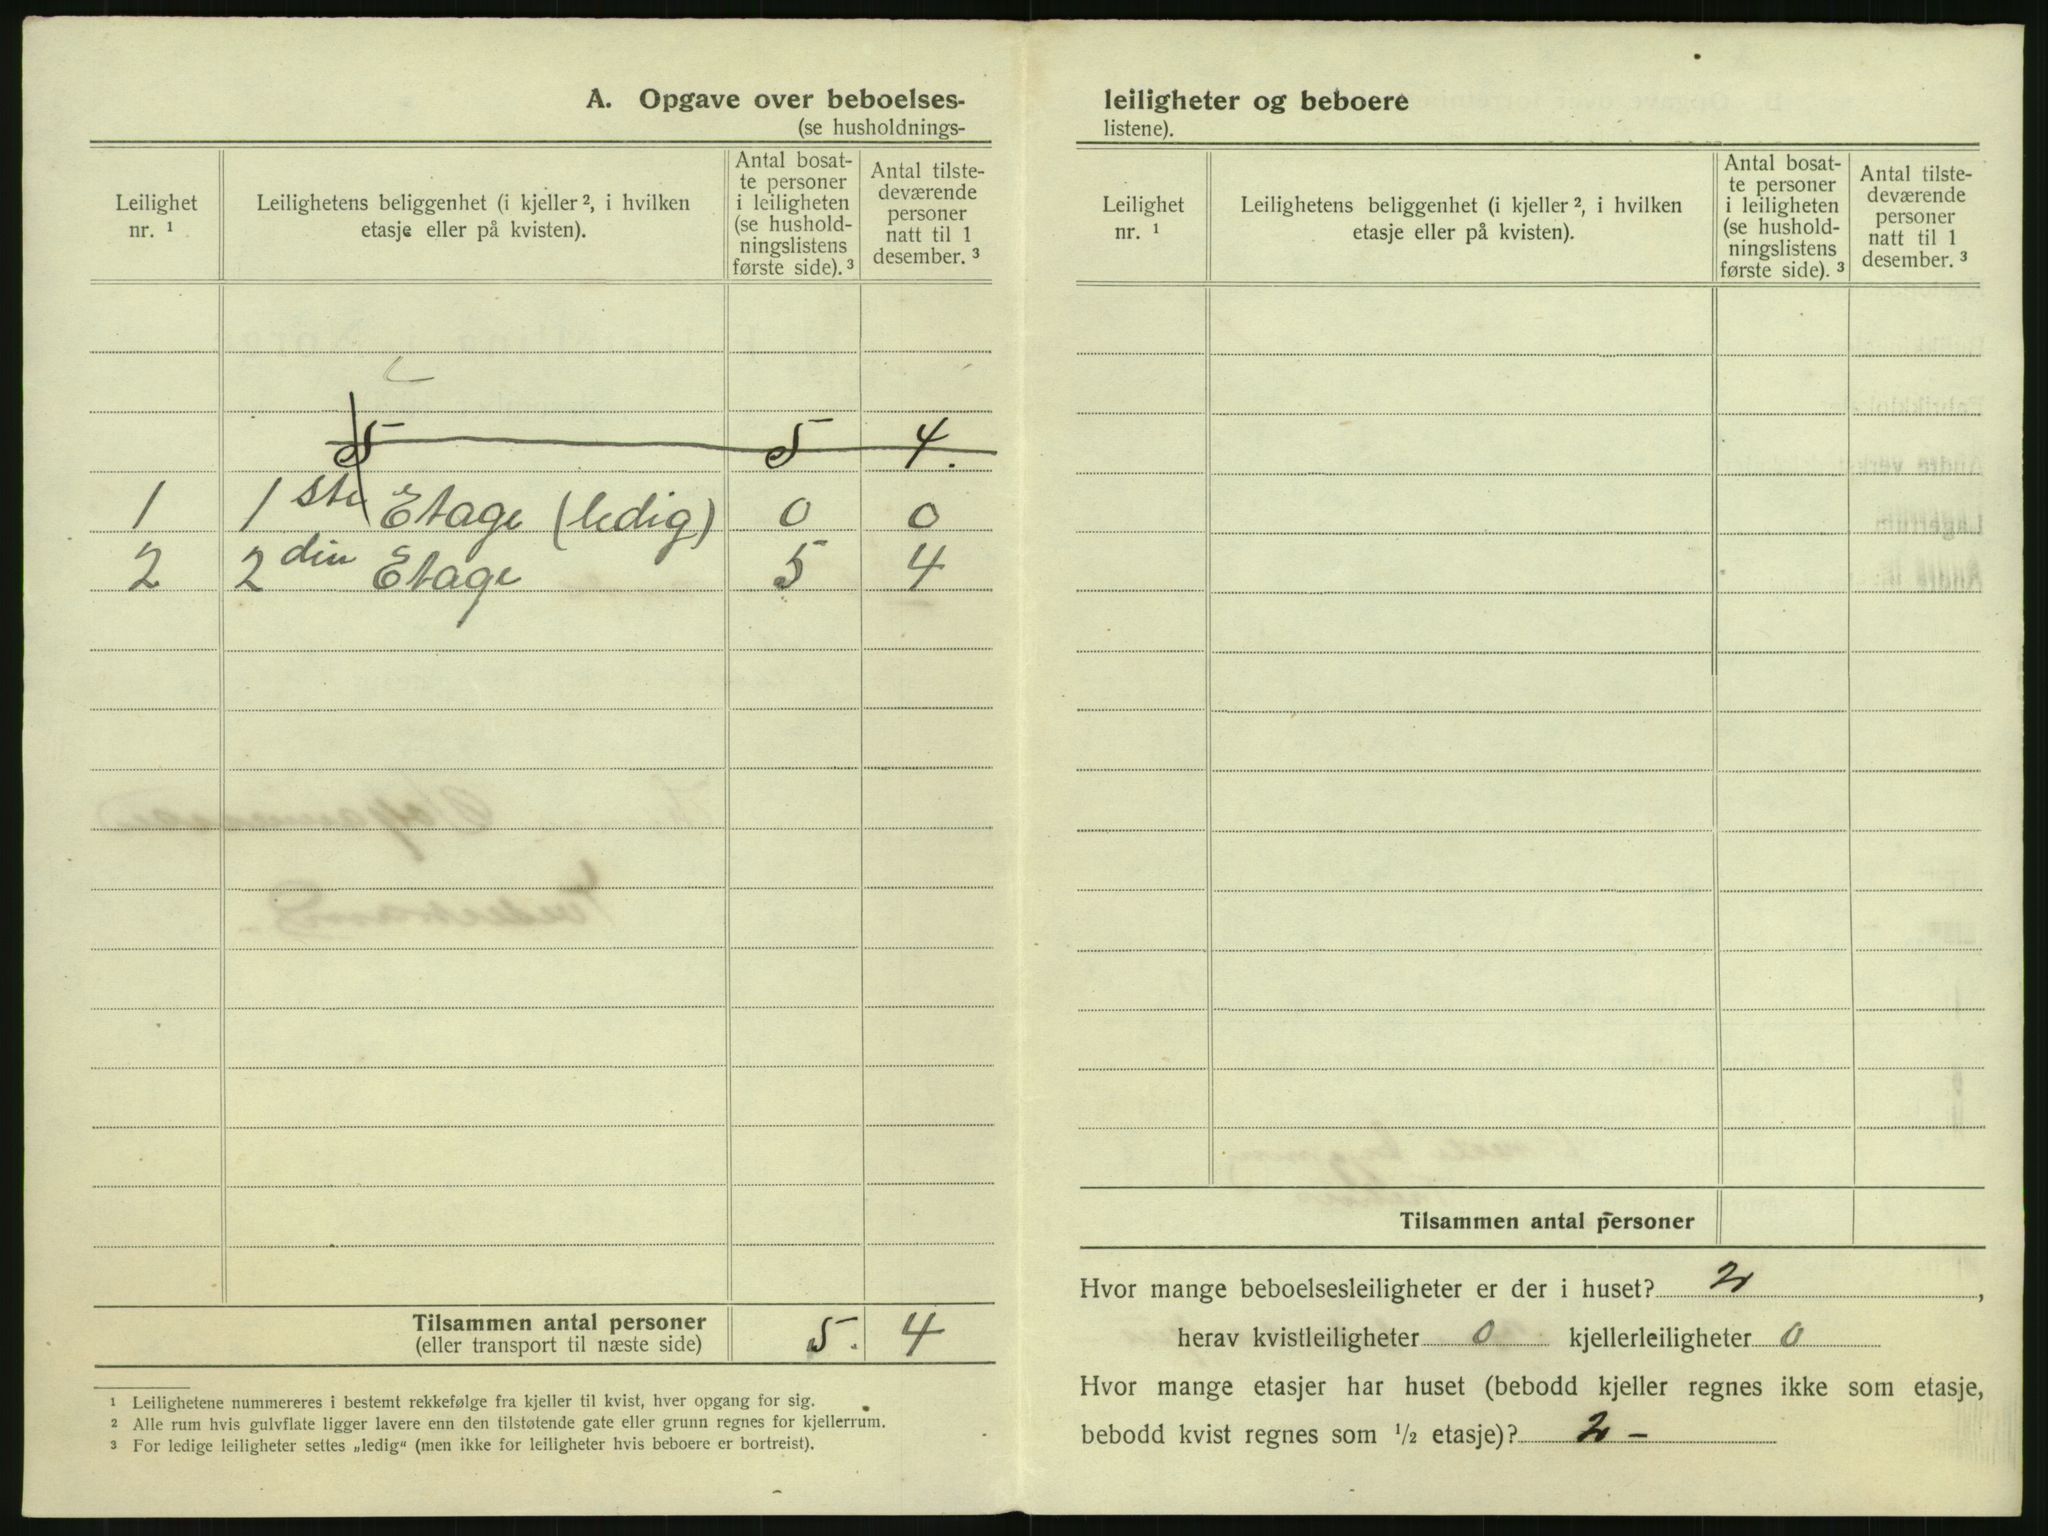 A. Opgave over beboelses-
(se husholdnings-
Leilighet
nr. ¹
Leilighetens beliggenhet (i kjeller ², i hvilken
etasje eller på kvisten).
Antal bosat-
te personer
i leiligheten
(se hushold-
ningslistens
første side). ³
Antal tilste-
deværende
personer
natt til 1
desember. ³
5 5 4.
1 1ste Etage (ledig) 0 0
2 2den Etage 5 4
Tilsammen antal personer 5. 4
(eller transport til næste side)
¹ Leilighetene nummereres i bestemt rekkefølge fra kjeller til kvist, hver opgang for sig.
² Alle rum hvis gulvflate ligger lavere enn den tilstøtende gate eller grunn regnes for kjellerrum.
³ For ledige leiligheter settes „ledig“ (men ikke for leiligheter hvis beboere er bortreist).
leiligheter og beboere
listene).
Leilighet
nr. ¹
Leilighetens beliggenhet (i kjeller ², i hvilken
etasje eller på kvisten).
Antal bosat-
te personer
i leiligheten
(se hushold-
ningslistens
første side). ³
Antal tilste-
deværende
personer
natt til 1
desember. ³
Tilsammen antal personer
Hvor mange beboelsesleiligheter er der i huset? 2,
herav kvistleiligheter 0 kjellerleiligheter 0
Hvor mange etasjer har huset (bebodd kjeller regnes ikke som etasje,
bebodd kvist regnes som ½ etasje)? 2 -